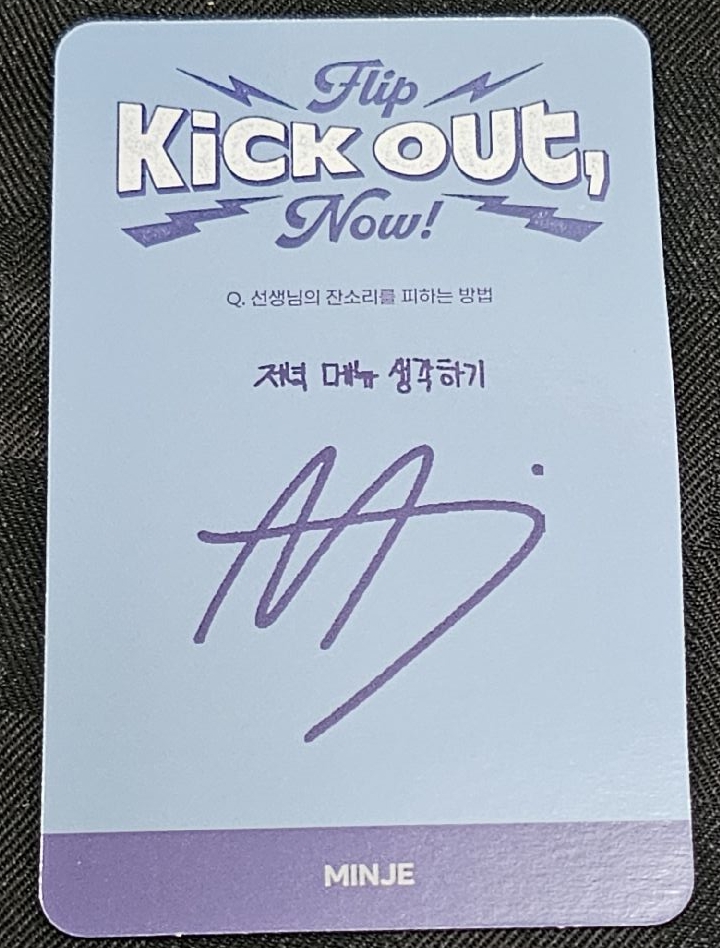 Flip
Kick out,
Now!
Q. 선생님의 잔소리를 피하는 방법
저녁 메뉴 생각하기
MINJE